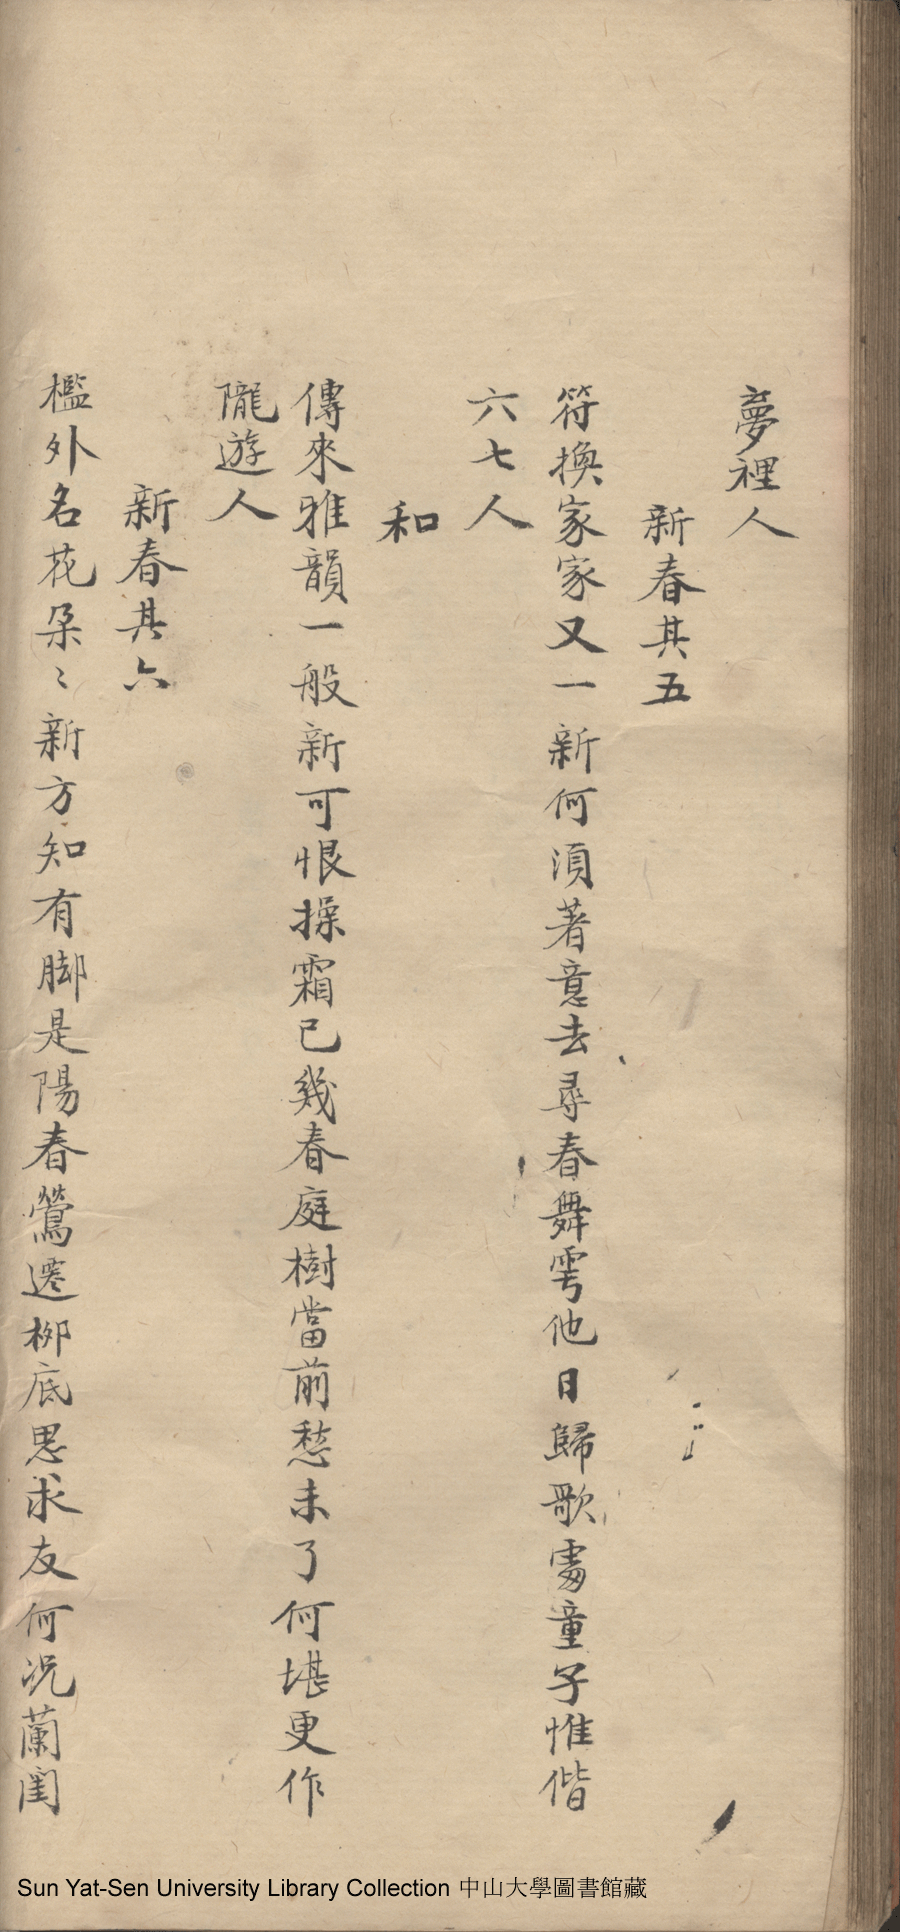 夢裡人
新春其五
符換家家又一新何須著意去尋春舞雩他日歸歌處童子惟偕
六七人
和
傳來雅韻一般新可恨操霜已幾春庭樹當前愁未了何堪更作
隴遊人
新春其六
檻外名花朶〻新方知有脚是陽春鶯遷栁底思求友何况蘭閨
Sun Yat-Sen University Library Collection 中山大學圖書館藏